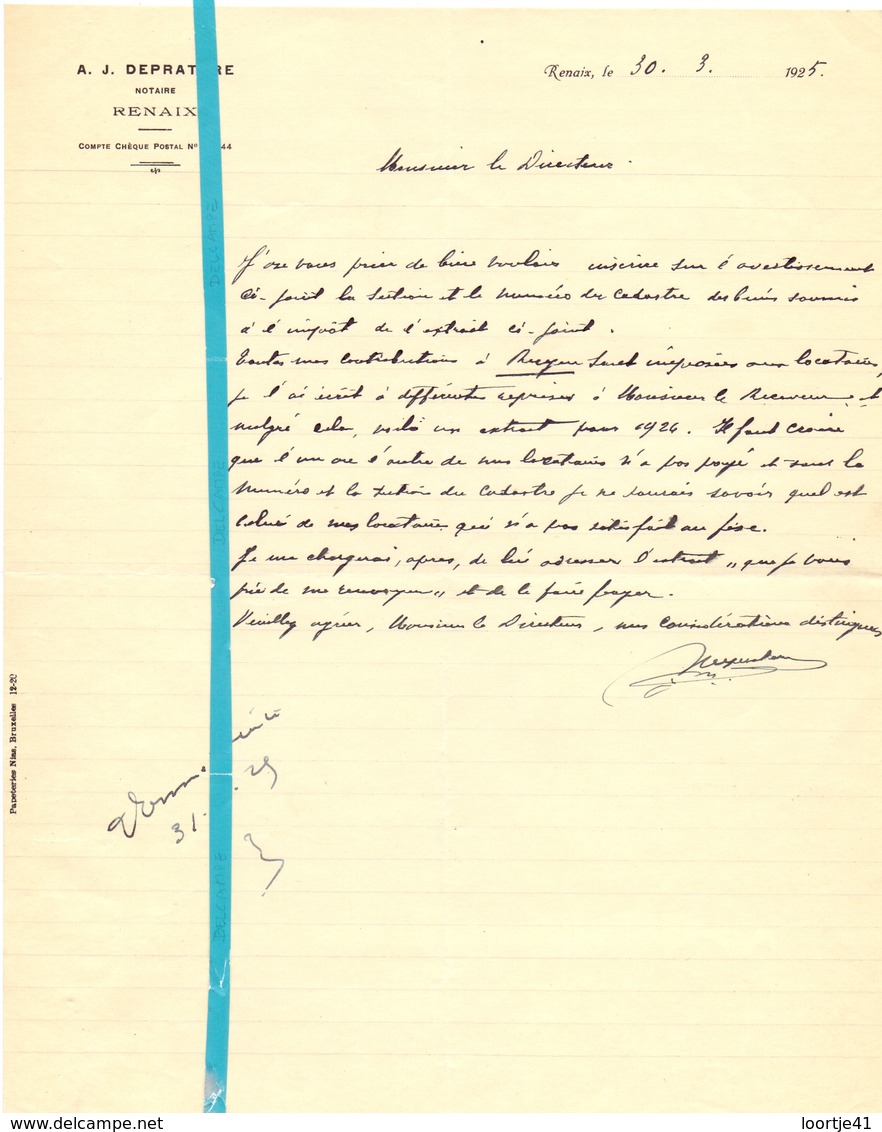 A. J. DEPRAT RE
NOTAIRE
RENAIX
COMPTE CHÈQUE POSTAL Nº 44
Renaix, le 30. 3. 1925.
Monsieur le Directeur.
J'ose vous prier de bien vouloir inscrire sur l'avertissement
ci-joint la section et le numéro du cadastre des biens soumis
à l'impôt de l'extrait ci-joint.
Toutes mes contributions à sont imposées aux locataires,
je l'ai écrit à différentes reprises à Monsieur le Receveur et
malgré cela, voilà un extrait pour 1924. Il faut croire
que l'un ou l'autre de mes locataires n'a pas payé et sans le
numéro et la section du cadastre je ne saurais savoir quel est
celui de mes locataires qui n'a pas satisfait au fisc.
Je me chargerai, après, de lui adresser l'extrait „ que je vous
prie de me renvoyer „ et de le faire payer.
Veuillez agréer, Monsieur le Directeur, mes considérations distinguées
31. 25
Papeteries Nias, Bruxelles 12-20
DELCAMPE
DELCAMPE
DELCAMPE
delcampe.net
loortje41